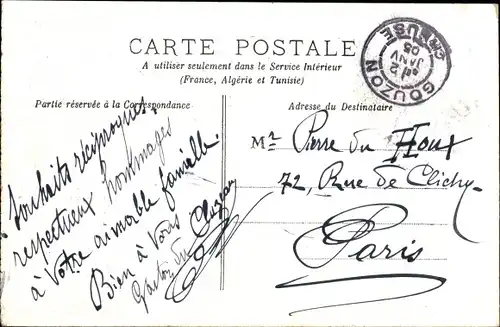 CARTE POSTALE
A utiliser seulement dans le Service Intérieur
(France, Algérie et Tunisie)
Partie réservée à la Correspondance
Adresse du Destinataire
GOUZON
CREUSE
2
JANV
05
Souhaits réciproques,
respectueux hommages
à votre aimable famille.
Bien à vous
Gaston du
Mr. Pierre du Houx
72, Rue de Clichy
Paris